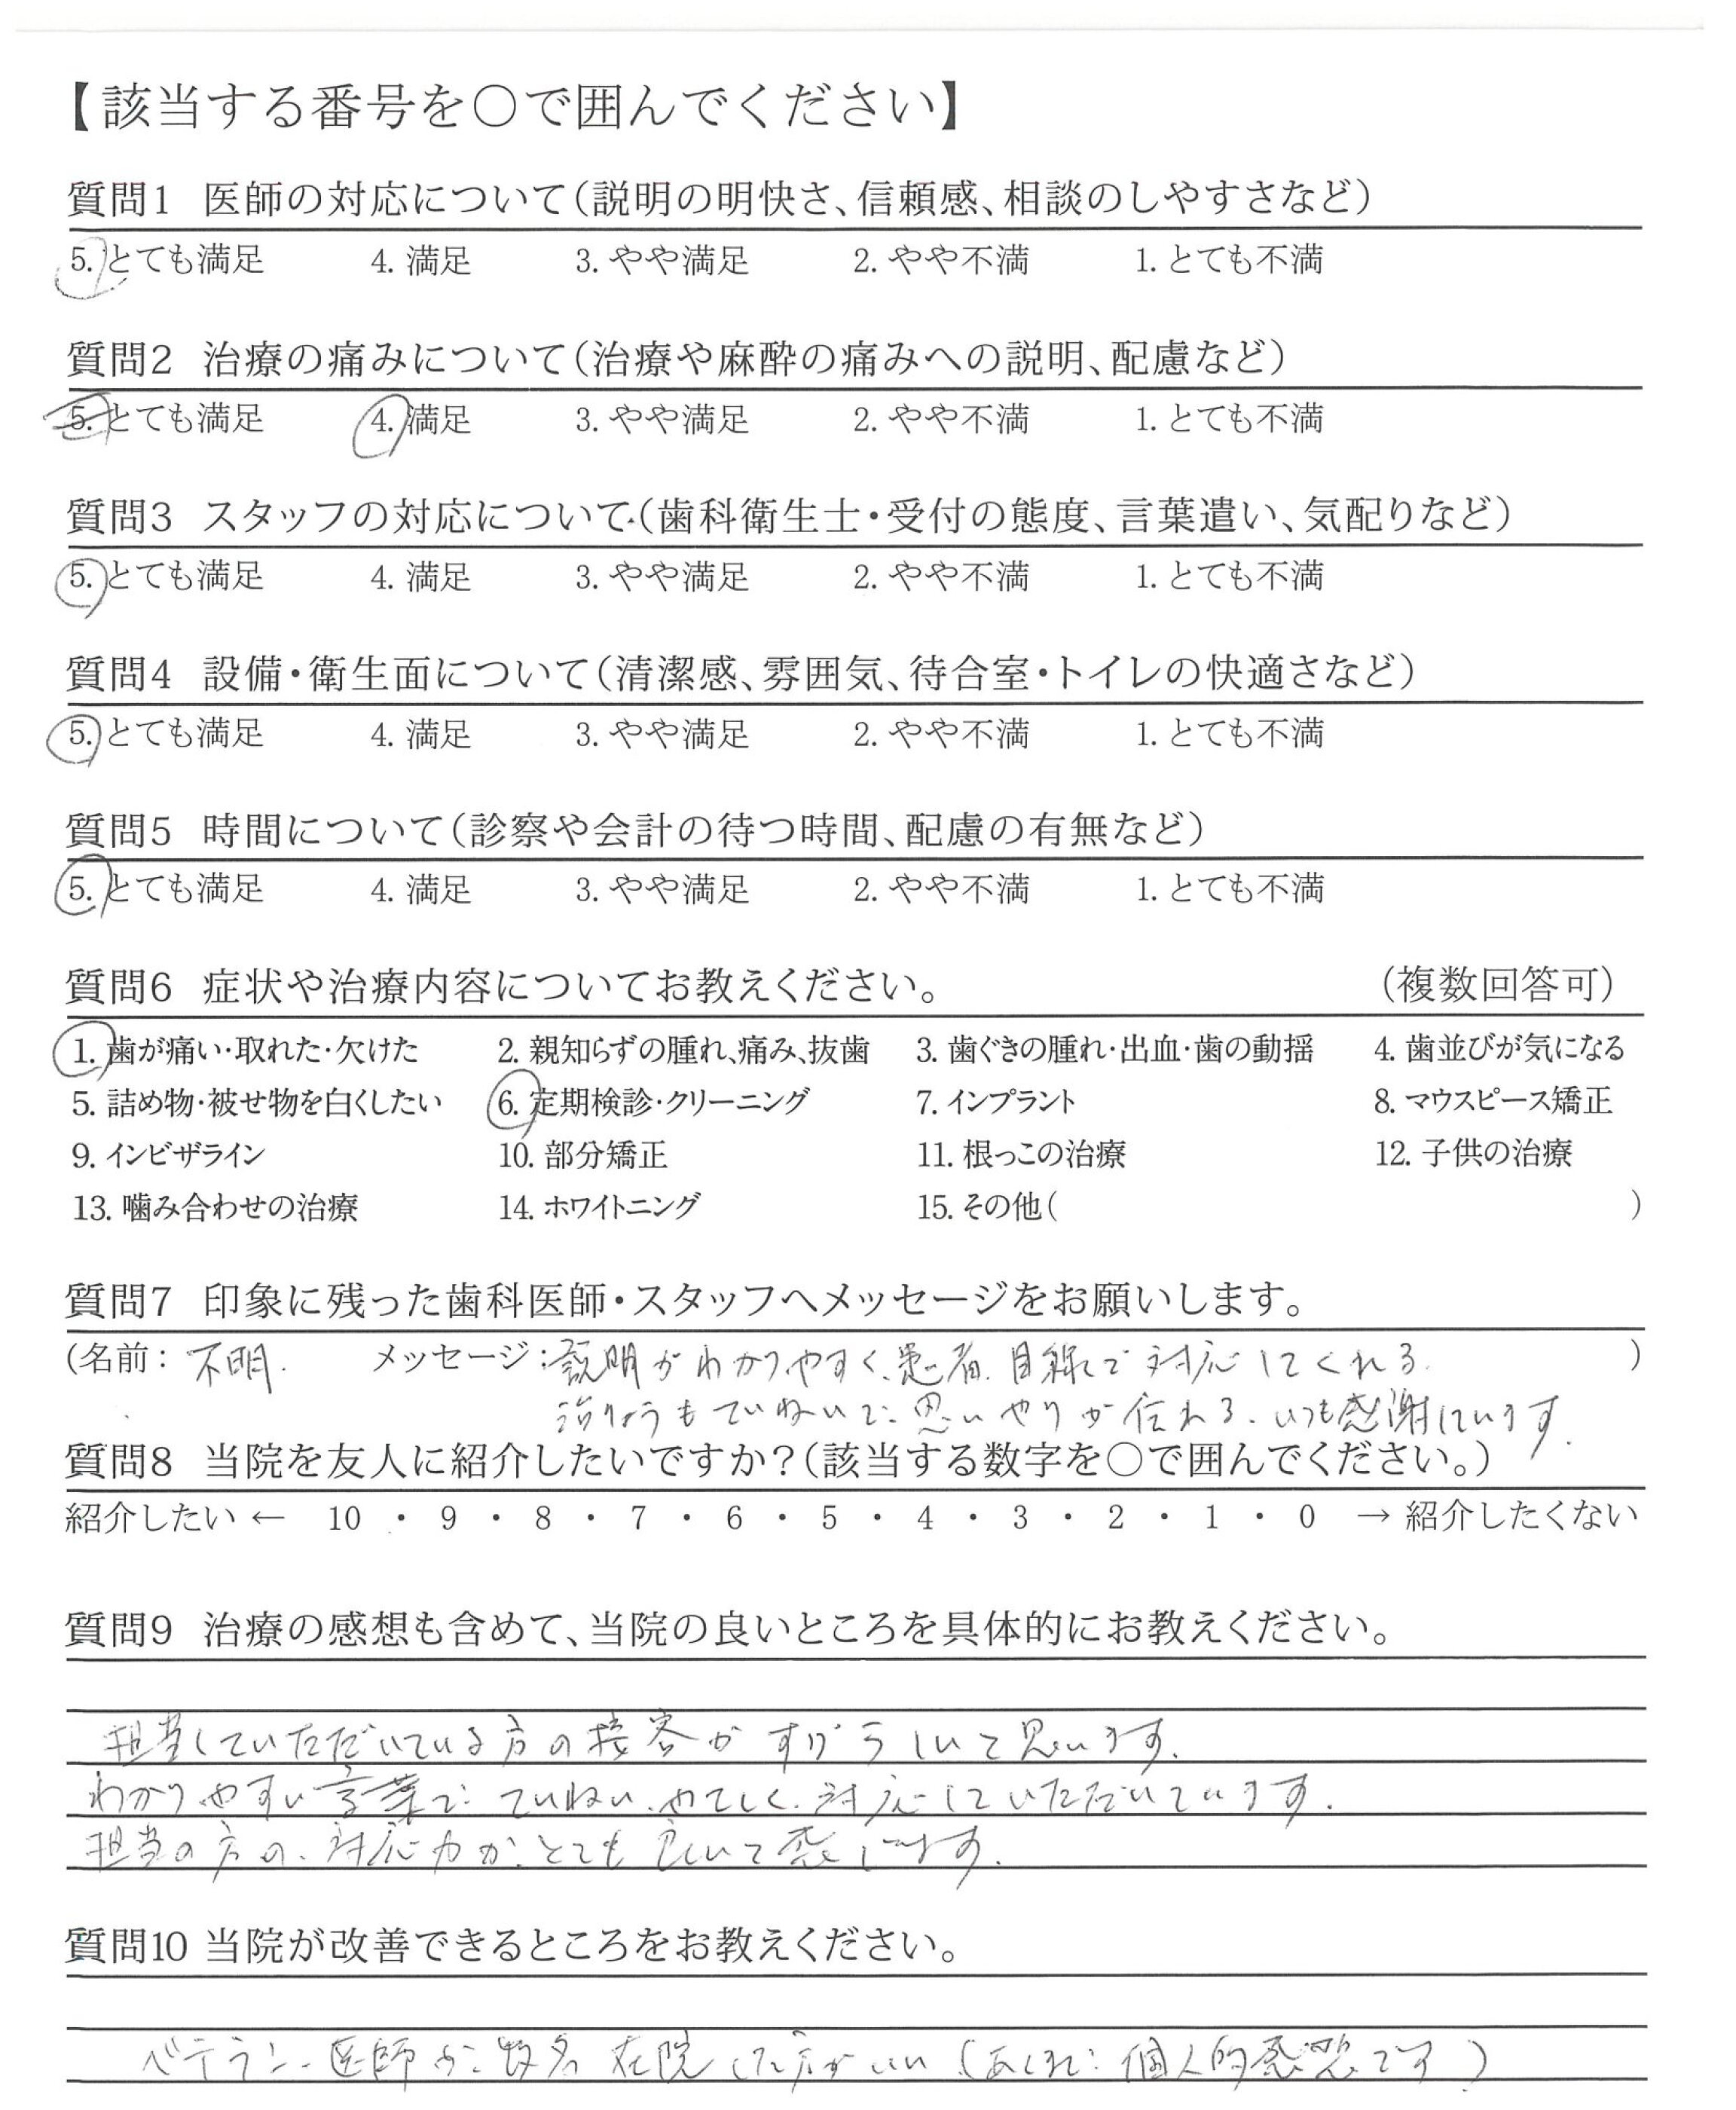 【該当する番号を○で囲んでください】
質問1 医師の対応について(説明の明快さ、信頼感、相談のしやすさなど)
5. とても満足 4. 満足 3. やや満足 2. やや不満 1. とても不満
質問2 治療の痛みについて(治療や麻酔の痛みへの説明、配慮など)
5. とても満足 4. 満足 3. やや満足 2. やや不満 1. とても不満
質問3 スタッフの対応について(歯科衛生士・受付の態度、言葉遣い、気配りなど)
5. とても満足 4. 満足 3. やや満足 2. やや不満 1. とても不満
質問4 設備・衛生面について(清潔感、雰囲気、待合室・トイレの快適さなど)
5. とても満足 4. 満足 3. やや満足 2. やや不満 1. とても不満
質問5 時間について(診察や会計の待つ時間、配慮の有無など)
5. とても満足 4. 満足 3. やや満足 2. やや不満 1. とても不満
質問6 症状や治療内容についてお教えください。 (複数回答可)
1. 歯が痛い・取れた・欠けた 2. 親知らずの腫れ、痛み、抜歯 3. 歯ぐきの腫れ・出血・歯の動揺 4. 歯並びが気になる
5. 詰め物・被せ物を白くしたい 6. 定期検診・クリーニング 7. インプラント 8. マウスピース矯正
9. インビザライン 10. 部分矯正 11. 根っこの治療 12. 子供の治療
13. 噛み合わせの治療 14. ホワイトニング 15. その他( )
質問7 印象に残った歯科医師・スタッフへメッセージをお願いします。
(名前: 不明. メッセージ: 説明がわかりやすく、患者目線で対応してくれる. )
治りょうもていねいで思いやりが伝わる. いつも感謝しています.
質問8 当院を友人に紹介したいですか?(該当する数字を○で囲んでください。)
紹介したい ← 10 ・ 9 ・ 8 ・ 7 ・ 6 ・ 5 ・ 4 ・ 3 ・ 2 ・ 1 ・ 0 → 紹介したくない
質問9 治療の感想も含めて、当院の良いところを具体的にお教えください。
担当していただいている方の接客がすばらしいと思います.
わかりやすい言葉でていねい、やさしく対応していただいています.
担当の方の、対応力がとても良いと感じます.
質問10 当院が改善できるところをお教えください。
ベテラン医師が数名在院した方がいい(あくまで個人的感想です)